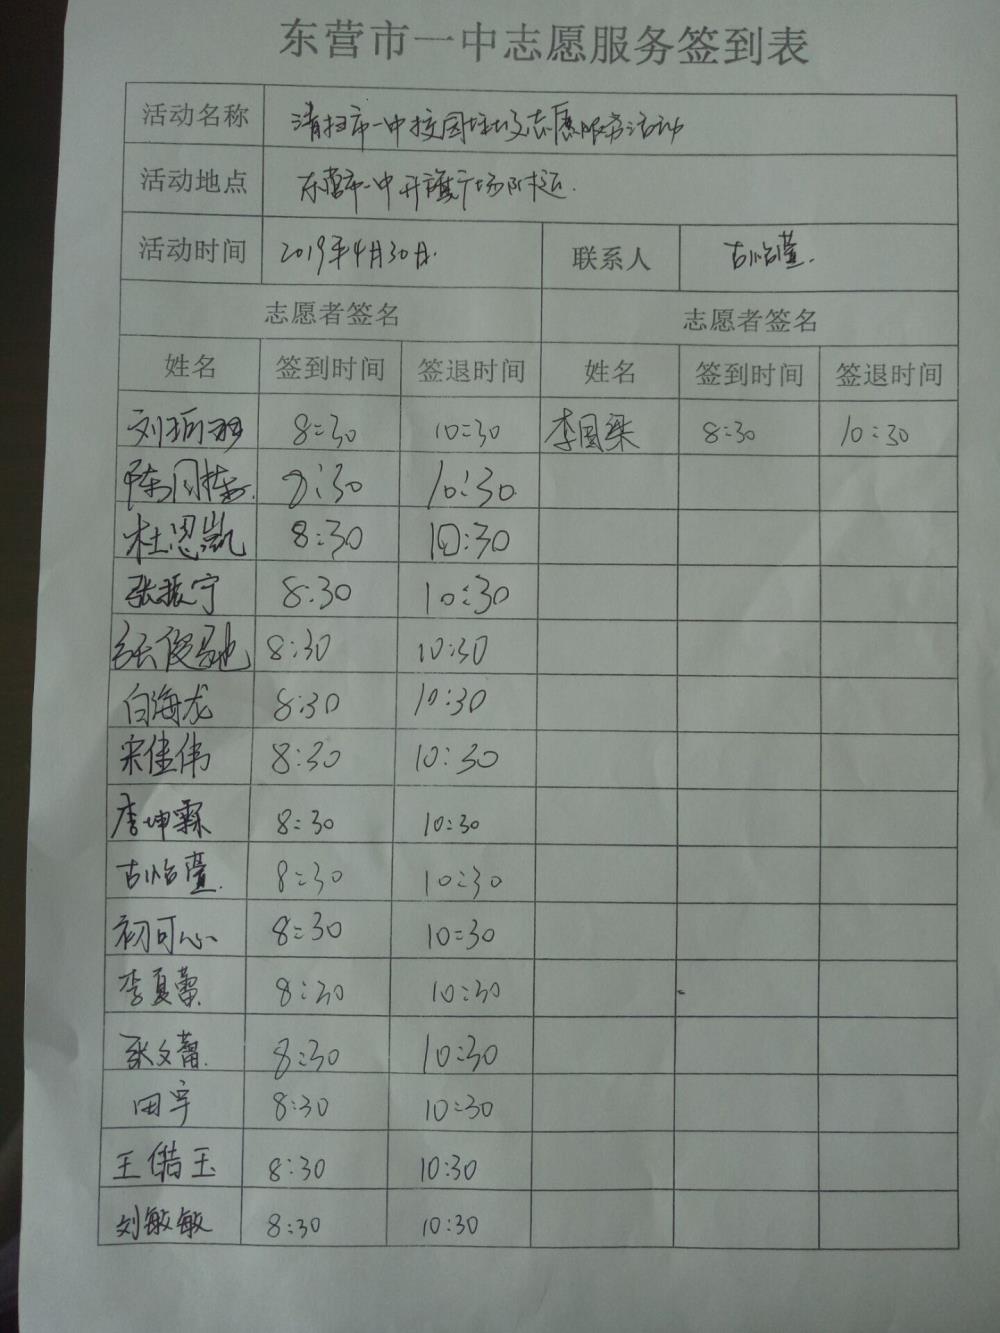 东营市一中志愿服务签到表
活动名称 清扫市一中校园垃圾志愿服务活动
活动地点 东营市一中升旗广场附近.
活动时间 2019年4月30日. 联系人 古怡萱.
志愿者签名 志愿者签名
姓名 签到时间 签退时间 姓名 签到时间 签退时间
刘 8:30 10:30 李国梁 8:30 10:30
陈同栋. 8:30 10:30
杜恩凯 8:30 10:30
张振宁 8:30 10:30
张俊驰 8:30 10:30
白海龙 8:30 10:30
宋佳伟 8:30 10:30
李坤霖 8:30 10:30
古怡萱. 8:30 10:30
初可心 8:30 10:30
李夏蕾 8:30 10:30
张文蕾. 8:30 10:30
田宇 8:30 10:30
王偕玉 8:30 10:30
刘敏敏 8:30 10:30